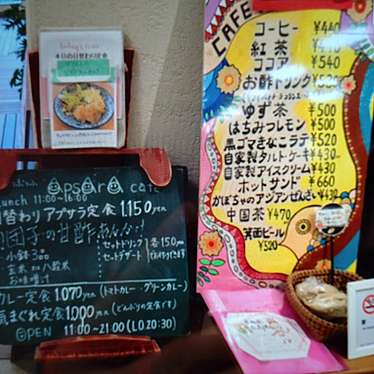 本日の日替わり定食
apsara cafe
Lunch 11:00~16:00
日替わりアプサラ定食 1,150yen
肉団子の甘酢あんかけ
小鉢3コ
玄米 or 八穀米
お味噌汁
セットドリンク 各150yen
セットデザート
カレー定食 1,070yen (トマトカレー・グリーンカレー)
気まぐれ定食 1,000yen (どんぶりの定食です)
OPEN 11:00~21:00 (LO 20:30)
CAFE
コーヒー ¥440
紅茶
ココア ¥540
お酢ドリンク
ゆず茶 ¥500
はちみつレモン ¥500
黒ゴマきなこラテ ¥520
自家製タルトケーキ ¥430~
自家製アイスクリーム ¥430~
ホットサンド ¥660
かぼちゃのアジアンぜんざい ¥430
中国茶 ¥470
箕面ビール
¥520